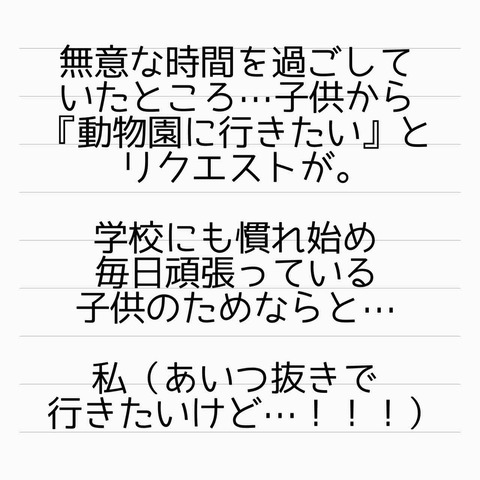 無意な時間を過ごして
いたところ…子供から
『動物園に行きたい』と
リクエストが。
学校にも慣れ始め
毎日頑張っている
子供のためならと…
私（あいつ抜きで
行きたいけど…！！！）